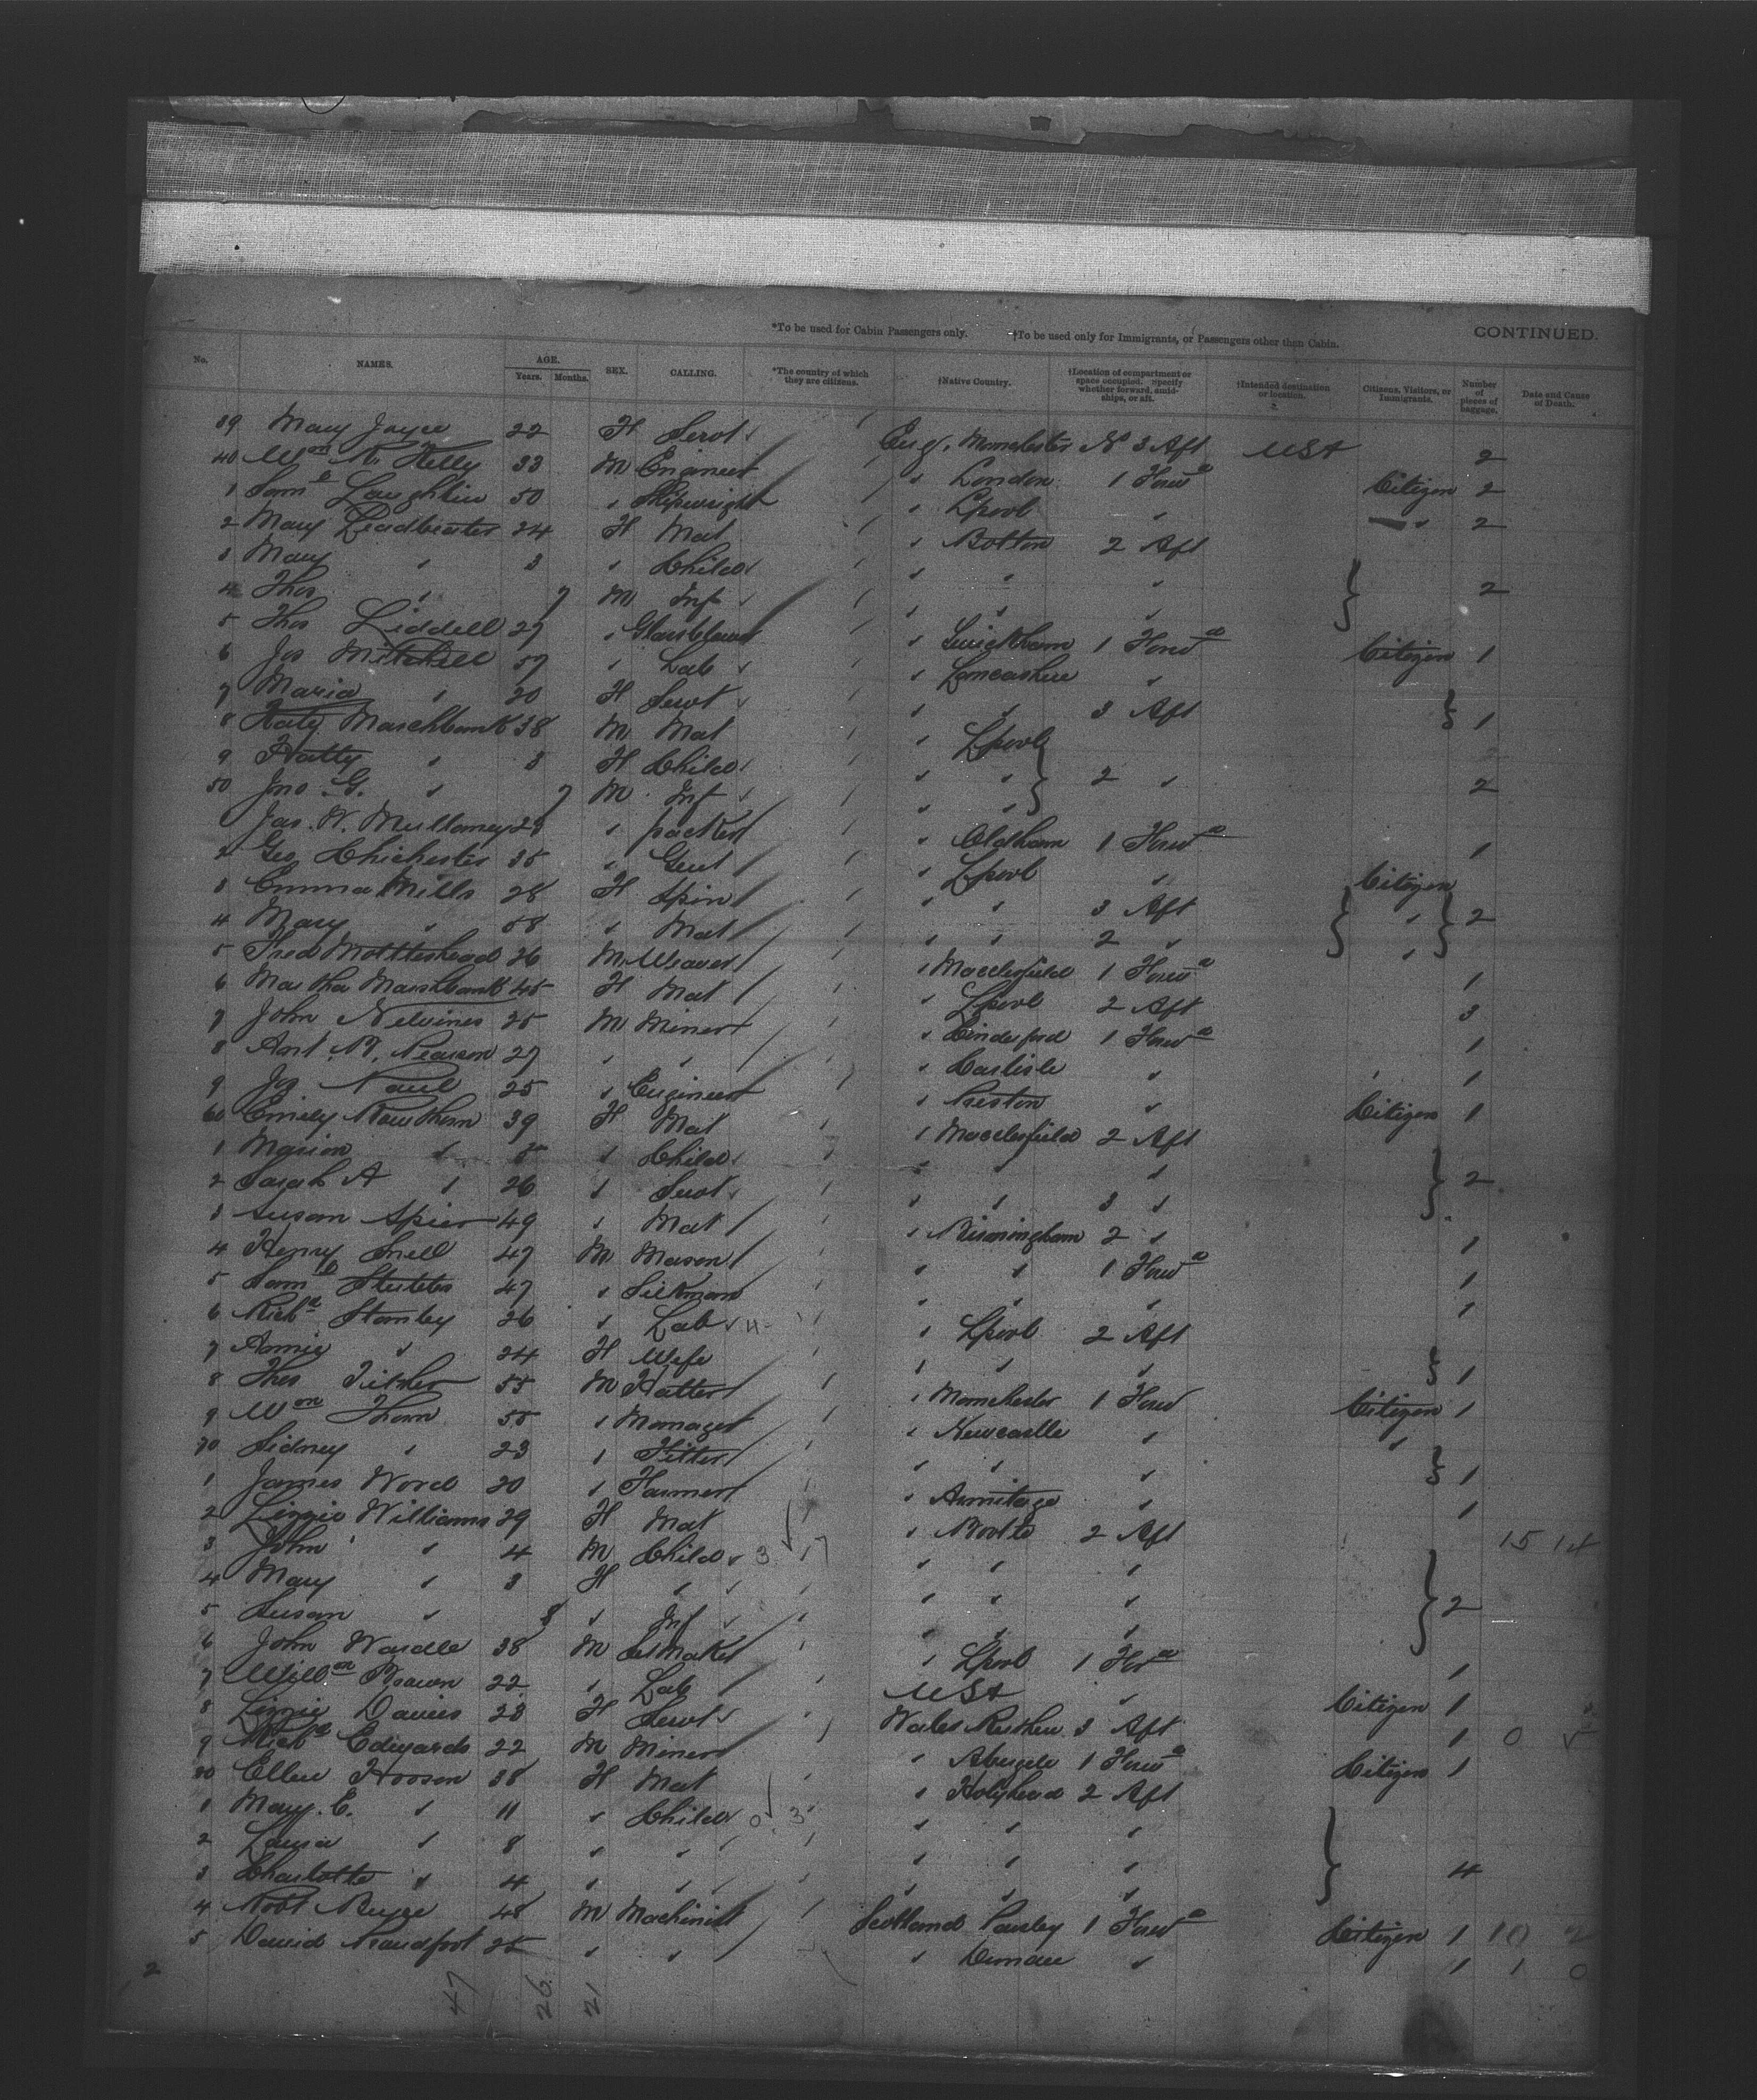 *To be used for Cabin Passengers only. †To be used only for Immigrants, or Passengers other then Cabin. CONTINUED.
No. NAMES. AGE. Years. Months. SEX. CALLING. *The country of which they are citizens. †Native Country. †Location of compartment or space occupied. Specify whether forward, amidships, or aft. †Intended destination or location. Citizens, Visitors, or Immigrants. Number of pieces of baggage. Date and Cause of Death.
39 Mary Joyce 22 F Servt Eng. Manchester No 3 Aft USA 2
40 Wm R. Kelly 33 M Engineer " London 1 Forwd Citizen 2
1 Saml Laughlin 50 " Shipwright " Lpool " " 2
2 Mary Leadbeater 24 F Mat " Bolton 2 Aft
3 Mary " 3 " Child " " "
4 Thos " 7 M Inf " " " 2
5 Thos Liddell 27 " Glassblower " 1 Forwd Citizen 1
6 Jos Mitchell 57 " Lab " Lancashire "
7 Maria " 20 F Servt " " 3 Aft 1
8 Katy Marchbank 38 M Mat " Lpool
9 Hatty " 3 F Child " " 2 "
50 Jno. G. " 7 M Inf " " 2
Jas. W. Mullaney 28 " packer " Oldham 1 Forwd 1
2 Geo Chichester 35 " Gent " Lpool " Citizen
3 Emma Mills 28 F Spin " " 3 Aft " 2
4 Mary " 58 " Mat " " 2 " "
5 Fred Mottershead 26 M Weaver " Macclesfield 1 Forwd 1
6 Martha Marshbank 45 F Mat " Lpool 2 Aft 3
7 John Nelvines 25 M Miner " Cinderford 1 Forwd 1
8 Art. W. Pearson 27 " " " Carlisle " 1
9 Jos Paul 25 " Engineer " Preston " Citizen 1
60 Emily Rawthorn 39 F Mat " Macclesfield 2 Aft
1 Marion " 5 " Child " " "
2 Sarah A " 26 " Servt " " 3 " 2
3 Susan Spier 49 " Mat " Birmingham 2 " 1
4 Henry Snell 47 M Mason " " 1 Forwd 1
5 Saml 47 " Silkman " " " 1
6 Richd Stanley 26 " Lab 4 " Lpool 2 Aft
7 Annie " 24 F Wife " " " 1
8 Thos 55 M Hatter " Manchester 1 Forwd Citizen 1
9 Wm Thom 55 " Manager " Newcastle " "
70 Sidney " 23 " Fitter " " " 1
1 James Ward 20 " Farmer " Armitage " 1
2 Lizzie Williams 29 F Mat " Bootle 2 Aft
3 John " 4 M Child 3 " " "
4 Mary " 3 F " " " "
5 Susan " 8 " Inf " " " 2
6 John Wardle 38 M " Lpool 1 Ford 1
7 Willm Brown 22 " Lab USA " Citizen 1
8 Lizzie Davies 23 F Servt Wales 3 Aft 1 0
9 Richd Edwards 22 M Miner " Abergele 1 Forwd Citizen 1
80 Ellen Hooson 38 F Mat " Holyhead 2 Aft
1 Mary. E. " 11 " Child 0 3 " " "
2 Laura " 8 " " " " "
3 Charlotte " 4 " " " " " 4
4 Robt 48 M Machinist Scotland Paisley 1 Forwd Citizen 1 10 2
5 David 25 " " " Dundee " 1 1 0
2 47 26 21